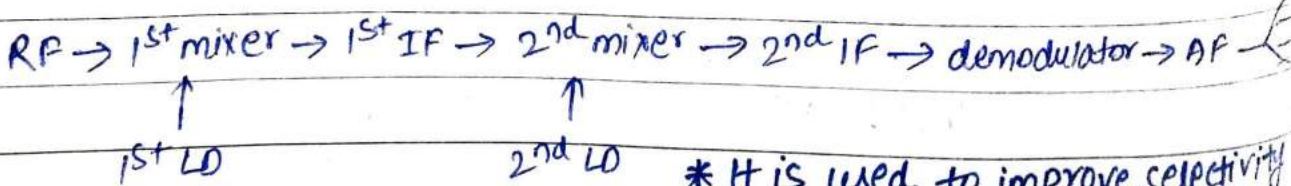 RF → 1st mixer → 1st IF → 2nd mixer → 2nd IF → demodulator → AF
1st LO 2nd LO * It is used to improve selectivity